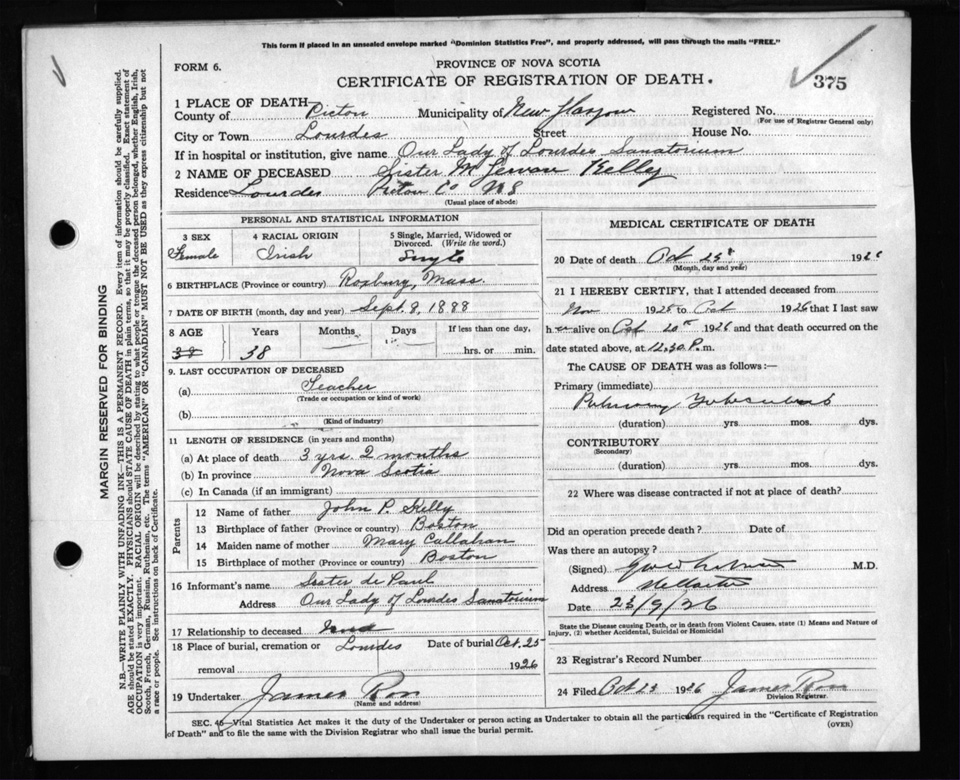 This form if placed in an unsealed envelope marked "Dominion Statistics Free", and properly addressed, will pass through the mails "FREE."
FORM 6.
PROVINCE OF NOVA SCOTIA
CERTIFICATE OF REGISTRATION OF DEATH.
375
1 PLACE OF DEATH
County of Pictou Municipality of New Glasgow Registered No.
(For use of Registrar General only)
City or Town Lourdes Street House No.
If in hospital or institution, give name Our Lady of Lourdes Sanatorium
2 NAME OF DECEASED Sister M Kelly
Residence Lourdes Pictou Co NS
(Usual place of abode)
PERSONAL AND STATISTICAL INFORMATION
3 SEX
Female
4 RACIAL ORIGIN
Irish
5 Single, Married, Widowed or Divorced. (Write the word.)
Single
6 BIRTHPLACE (Province or country) Roxbury, Mass.
7 DATE OF BIRTH (month, day and year) Sept. 8, 1888
8 AGE Years Months Days If less than one day
38 38 hrs. or min.
9. LAST OCCUPATION OF DECEASED
(a) Teacher
(Trade or occupation or kind of work)
(b)
(Kind of industry)
11 LENGTH OF RESIDENCE (in years and months)
(a) At place of death 3 yrs. 2 months
(b) In province Nova Scotia
(c) In Canada (if an immigrant)
Parents
12 Name of father John P. Kelly
13 Birthplace of father (Province or country) Boston
14 Maiden name of mother Mary Callahan
15 Birthplace of mother (Province or country) Boston
16 Informant's name Sister de Paul
Address Our Lady of Lourdes Sanatorium
17 Relationship to deceased
18 Place of burial, cremation or removal Lourdes Date of burial Oct. 25 1926
19 Undertaker James Ross
(Name and address)
MEDICAL CERTIFICATE OF DEATH
20 Date of death Oct 23 192
(Month, day and year)
21 I HEREBY CERTIFY, that I attended deceased from
Nov 1925 to Oct 1926 that I last saw
h alive on Oct 20 1926 and that death occurred on the
date stated above, at 12.30 P. m.
The CAUSE OF DEATH was as follows:—
Primary (immediate)
Pulmonary Tuberculosis
(duration) yrs. mos. dys.
CONTRIBUTORY
(Secondary)
(duration) yrs. mos. dys.
22 Where was disease contracted if not at place of death?
Did an operation precede death? Date of
Was there an autopsy?
(Signed) M.D.
Address Stellarton
Date 23/9/26
State the Disease causing Death, or in death from Violent Causes, state (1) Means and Nature of Injury, (2) whether Accidental, Suicidal or Homicidal
23 Registrar's Record Number
24 Filed Oct 23 1926 James Ross
Division Registrar
SEC. 46—Vital Statistics Act makes it the duty of the Undertaker or person acting as Undertaker to obtain all the particulars required in the "Certificate of Registration
of Death" and to file the same with the Division Registrar who shall issue the burial permit.
(OVER)
MARGIN RESERVED FOR BINDING
N.B.—WRITE PLAINLY WITH UNFADING INK—THIS IS A PERMANENT RECORD. Every item of information should be carefully supplied.
AGE should be stated EXACTLY. PHYSICIANS should STATE CAUSE OF DEATH in plain terms, so that it may be properly classified. Exact statement of
OCCUPATION is very important. RACIAL ORIGIN will be described by stating to what people or tongue the deceased person belonged, whether English, Irish,
Scotch, French, German, Russian, Ruthenian, etc. The terms "AMERICAN" OR "CANADIAN" MUST NOT BE USED as they express citizenship but not
a race or people. See instructions on back of Certificate.